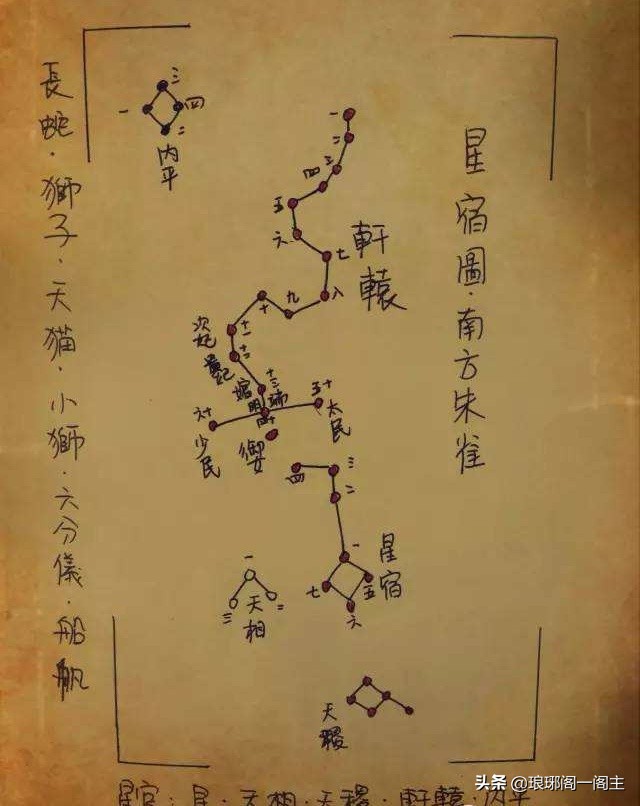 星宿圖·南方朱雀
長蛇·獅子·天猫·小獅·六分儀·船帆
三
一
四
二
内平
一
二
三
四
五
六
七
軒轅
八
九
十
十一
次妃
十二
貴妃
十三
端明
十四
五十
太民
六十
少民
御女
四
三
二
一
星宿
七
五
六
一
三
二
天相
天稷
星官：星·天相·天稷·軒轅·内平
头条 @琅琊阁一阁主